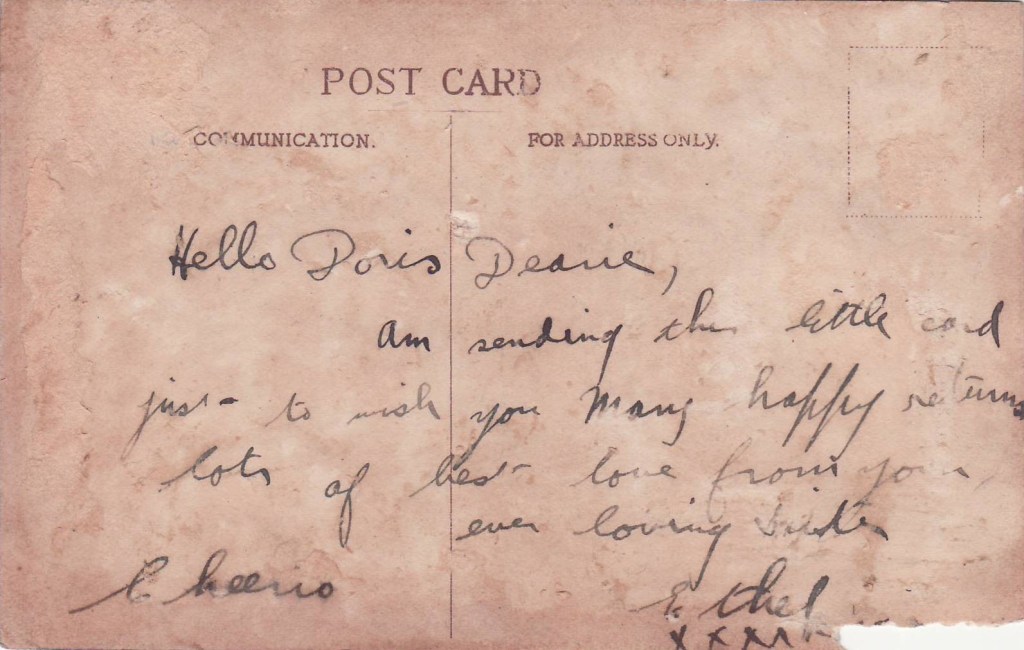 POST CARD
COMMUNICATION. FOR ADDRESS ONLY.
Hello Doris Dearie,
am sending this little card
just to wish you Many happy returns
lots of best love from your
ever loving Sister
Cheerio Ethel
xxxx